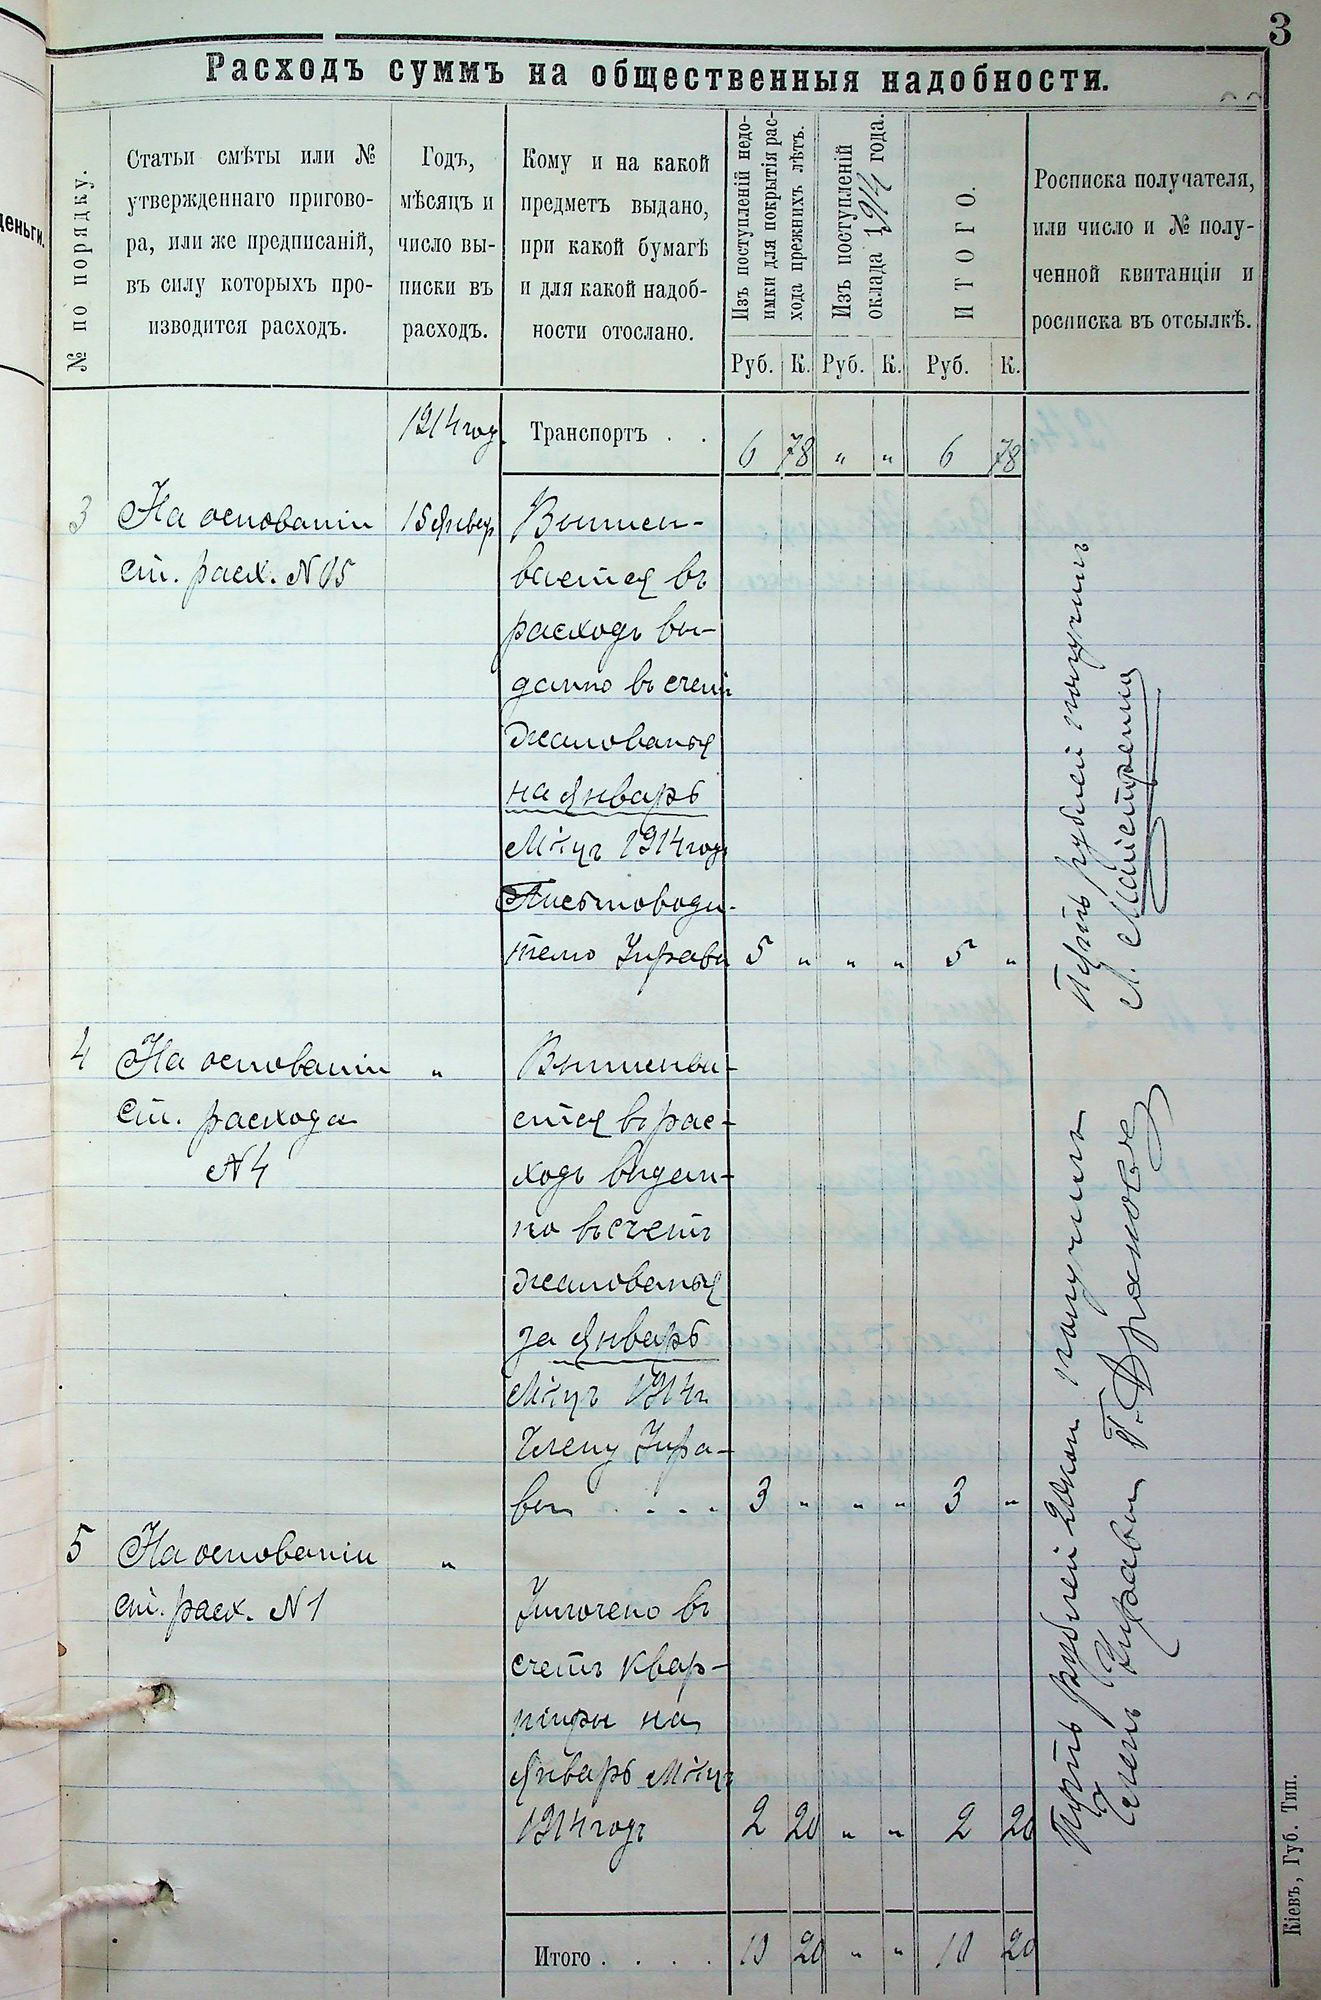 3
Расходъ суммъ на общественныя надобности.
№ по порядку.
Статьи смѣты или №
утвержденнаго пригово-
ра, или же предписаній,
въ силу которыхъ про-
изводится расходъ.
Годъ,
мѣсяцъ и
число вы-
писки въ
расходъ.
Кому и на какой
предметъ выдано,
при какой бумагѣ
и для какой надоб-
ности отослано.
Изъ поступленій недо-
имки для покрытія рас-
хода прежнихъ лѣтъ.
Изъ поступленій
оклада 1914 года.
ИТОГО.
Росписка получателя,
или число и № полу-
ченной квитанціи и
росписка въ отсылкѣ.
Руб. К. Руб. К. Руб. К.
деньги.
1914 год
Транспортъ . . 6 78 „ „ 6 78
3 На основаніи 15 Январ
ст. расх. №15
Выписы-
вается въ
расходъ вы-
данно въ счетъ
жалованья
на Январь
М-цъ 1914 годъ
Письмоводи-
телю Управы 5 „ „ „ 5 „
Пять рублей получилъ
Л. Магістренко
4 На основаніи „
ст. расхода
№4
Выписыва-
ется въ рас-
ходъ видан-
но въ счетъ
жалованья
за Январь
М-цъ 1914 г.
Члену Упра-
вы . . . . 3 „ „ „ 3 „
5 На основаніи „
ст. расх. №1
Уплочено въ
счетъ квар-
тиры на
Январь М-цъ
1914 годъ 2 20 „ „ 2 20
Пять рублей 20 коп получилъ
Членъ Управы Г.
Итого . . . . 10 20 „ „ 10 20
Кіевъ, Губ. Тип.